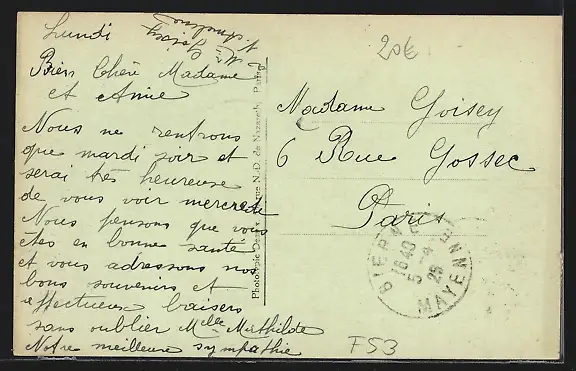 Lundi
Bien Chère Madame
et Amie
Nous ne rentrons
que mardi soir et
serai tès heureuse
de vous voir mercredi
Nous pensons que vous
êtes en bonne santé
et vous adressons nos
bons souvenirs et
affectueux baisers
sans oublier Melle Mathilde
Notre meilleure sympathie
Goisey
Phototypie rue N.-D. de Nazareth, Paris
20€
Madame Goisey
6 Rue Gossec
Paris
BIERNE
MAYENNE
F53